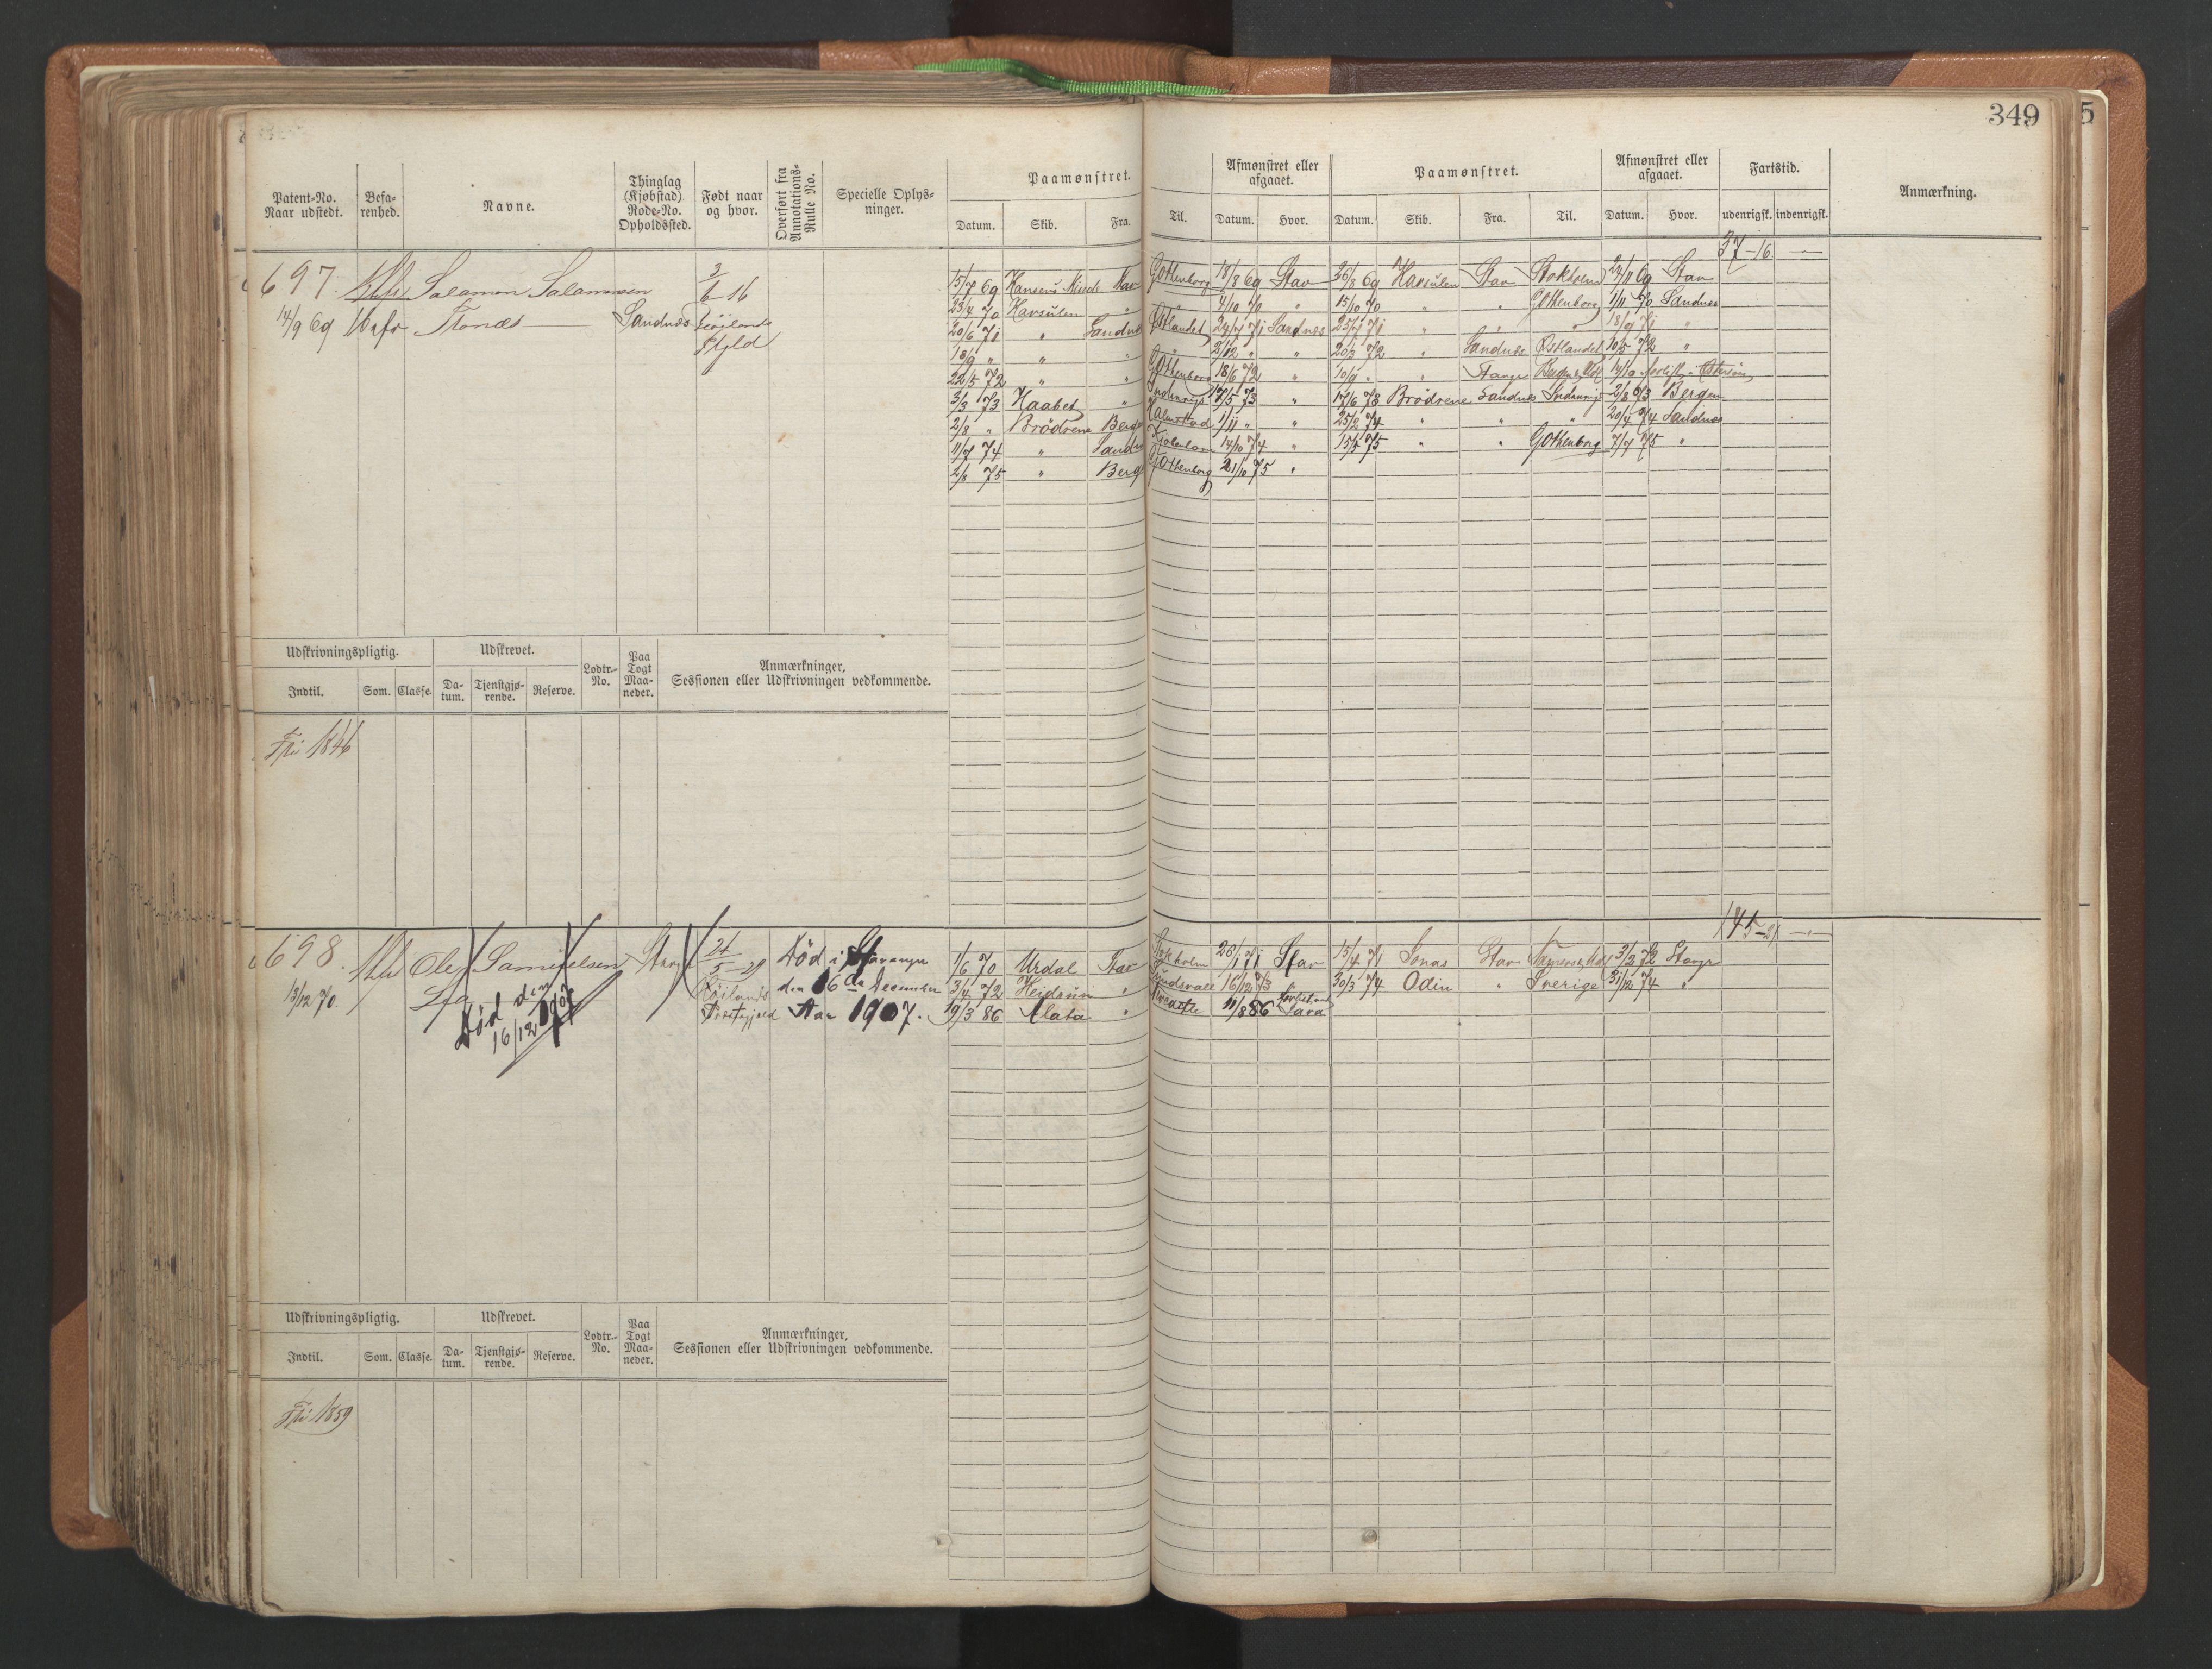 349
5
Patent-No. Naar udstedt.
Befa-renhed.
Navne.
Thinglag (Kjøbstad) Rode-No. Opholdssted.
Født naar og hvor.
Overført fra Annotations-Rulle No.
Specielle Oplys-ninger.
Paamønstret.
Datum. Skib. Fra. Til.
Afmønstret eller afgaaet.
Datum. Hvor.
Paamønstret.
Datum. Skib. Fra. Til.
Afmønstret eller afgaaet.
Datum. Hvor.
Fartstid.
udenrigsk. indenrigsk.
Anmærkning.
37-16 —
697 Salamon Salamonsen 3/6-16
14/9 69 Sandnes
15/7 69 Stav Gothenborg 18/8 69 Stav 26/8 69 Havsulen Stav Stokholm 24/11 69 Stav
23/4 70 Havsulen " " 4/10 70 " 15/10 70 " " Gothenborg 1/11 70 Sandnes
20/6 71 " Sandnes Østlandet 24/7 71 Sandnes 25/7 71 " " " 18/9 71 "
18/9 " " " " 2/12 " " 20/3 72 " Sandnes Østlandet 10/5 72 "
22/5 72 " " Gothenborg 18/6 72 " 10/9 " " Stavgr 14/10
3/3 73 Haabet " Indenrigs 17/5 73 " 17/6 73 Brødrene Sandnes Indenrigs 2/8 73 Bergen
2/8 " Brødrene Berg Halmstad 1/11 " " 25/2 74 " " " 20/4 74 Sandnes
11/7 74 " Sandn Kjøbenhavn 14/10 74 " 15/5 75 " " Gothenborg 7/7 75 "
2/8 75 " Berg Gothenborg 21/10 75 "
Udskrivningspligtig. Udskrevet. Lodtr.-No. Paa Togt Maa-neder. Anmærkninger, Sessionen eller Udskrivningen vedkommende.
Indtil. Som. Classe. Da-tum. Tjenstgjø-rende. Reserve.
Fri 1846
145-21 —
698 Ole Samuelsen Stavgr 24/5-29 Død i Stavanger
13/12 70 Død den 16/12 1907 den 16de December
Præstegjeld Aar 1907.
1/6 70 Urdal Stav Stokholm 28/1 71 Stav 15/4 71 Jonas Stav 3/2 72 Stavgr
3/4 72 Heidrun " Sundsvall 16/12 73 30/3 74 Odin " Sverige 31/12 74 "
19/3 86 " Newcastle 11/8 86 Sara
Udskrivningspligtig. Udskrevet. Lodtr.-No. Paa Togt Maa-neder. Anmærkninger, Sessionen eller Udskrivningen vedkommende.
Indtil. Som. Classe. Da-tum. Tjenstgjø-rende. Reserve.
Fri 1859